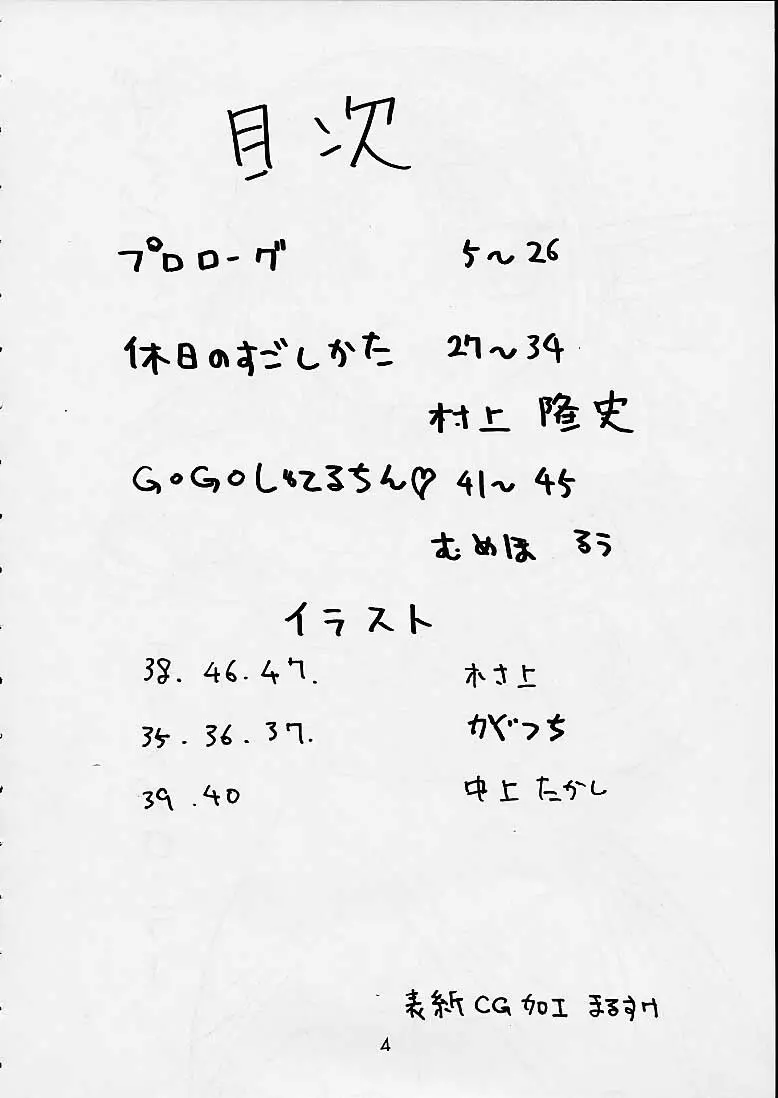 目次
プロローグ 5〜26
休日のすごしかた 27〜34
村上 隆史
GOGOしゅてるちん♡ 41〜45
むめほ るう
イラスト
38. 46. 47. 木さ上
35. 36. 37. がぐっち
39. 40 中上たかし
表紙CG加工 まるすけ
4